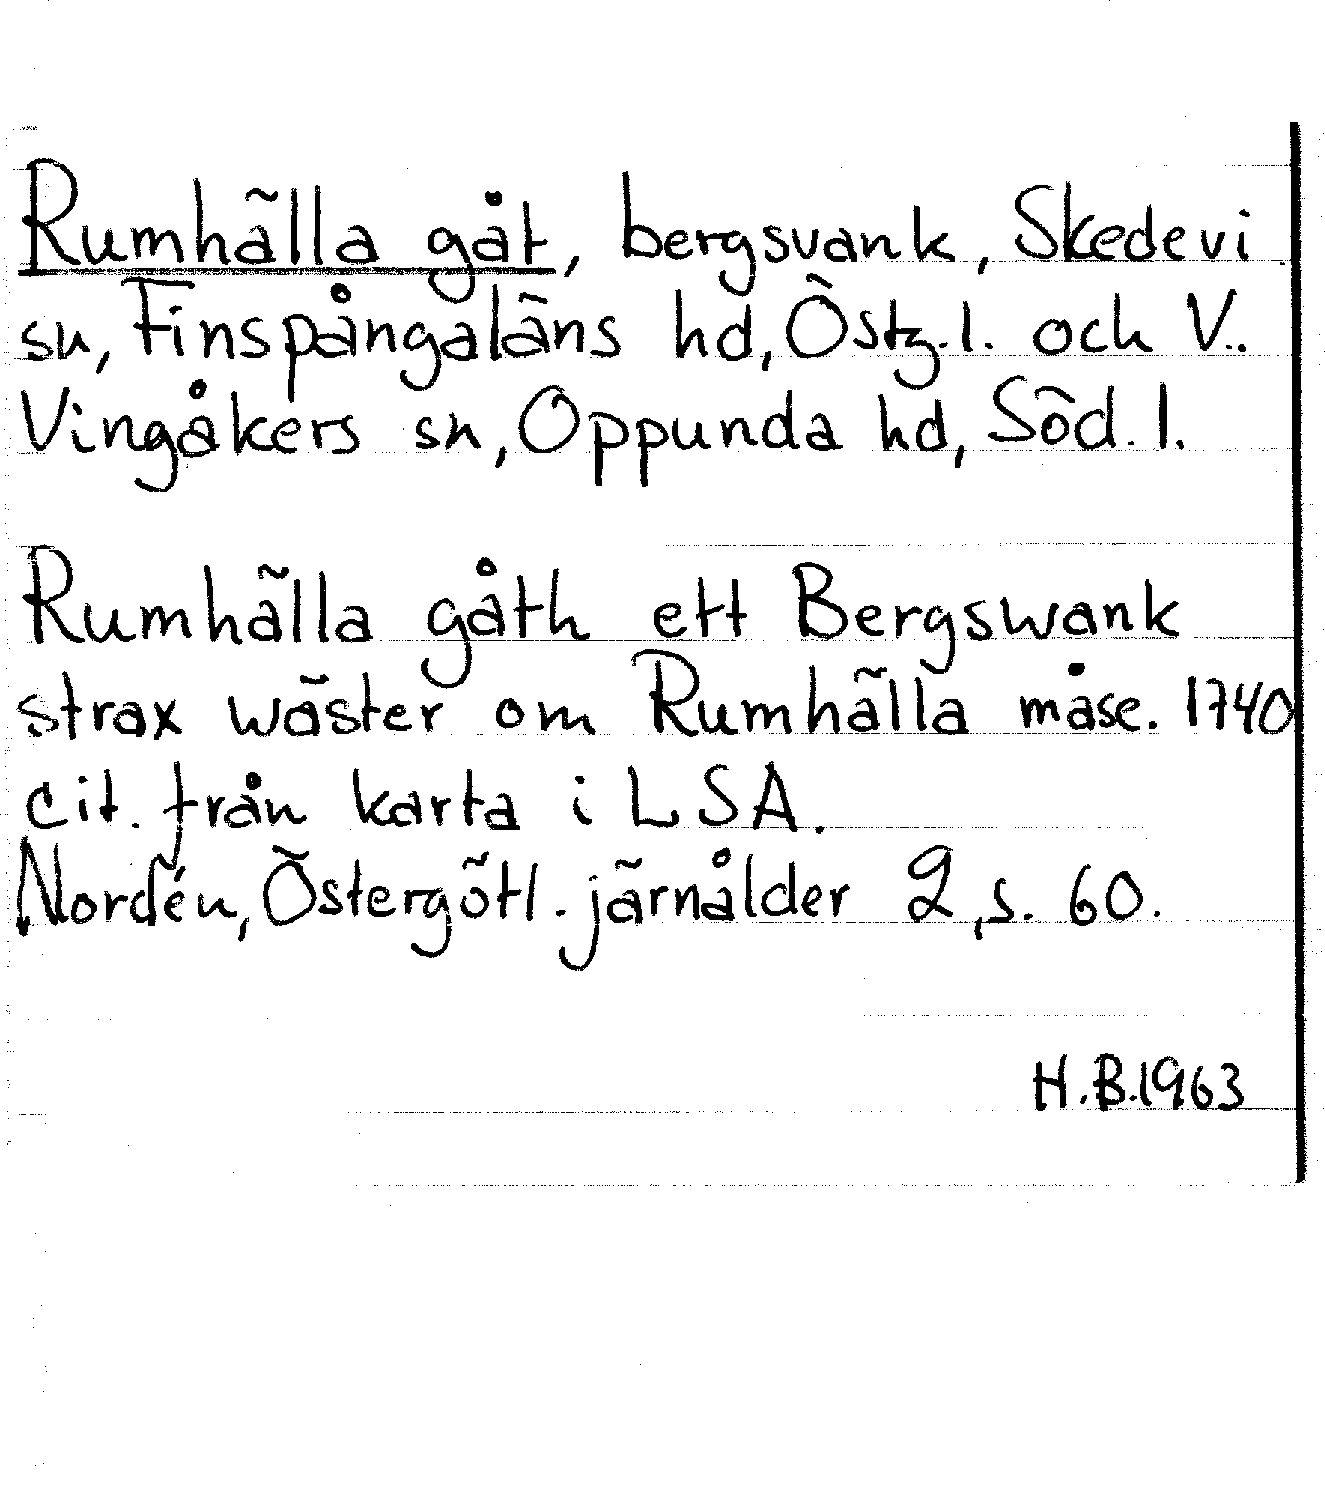 Rumhälla gåt, bergsvank, Skedevi
sn, Finspångaläns hd, Östg. l. och V.
Vingåkers sn, Oppunda hd, Söd. l.
Rumhälla gåth ett Bergswank
strax wäster om Rumhälla måse. 1740
cit. från karta i LSA.
Nordén, Östergötl. järnålder 2, s. 60.
H.B. 1963